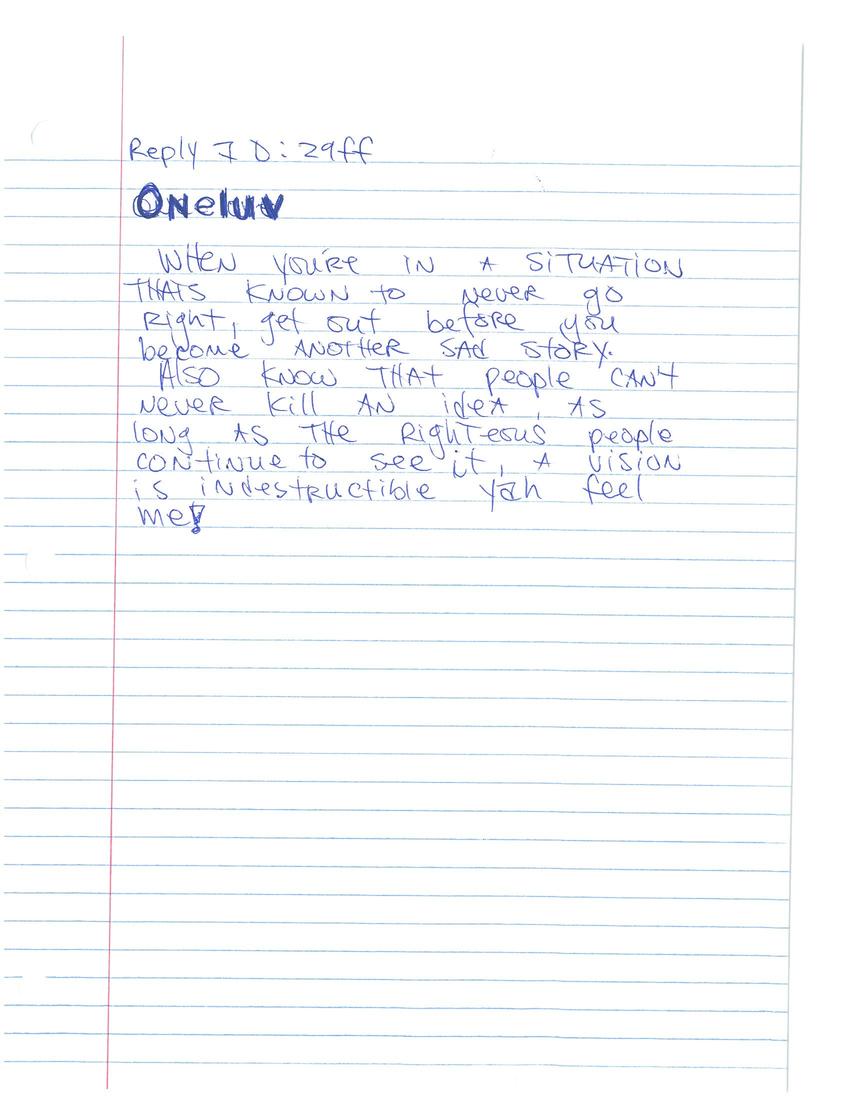 Reply ID: 29ff
Oneluv
WHEN you're IN A SITUATION
THATS KNOWN to never go
Right, get out before you
become ANOTHER SAd story.
Also KNOW THAT people CAN't
never kill AN ideA, AS
long AS THE RighTeous people
continue to see it, A vision
is indestructible yah feel
me!